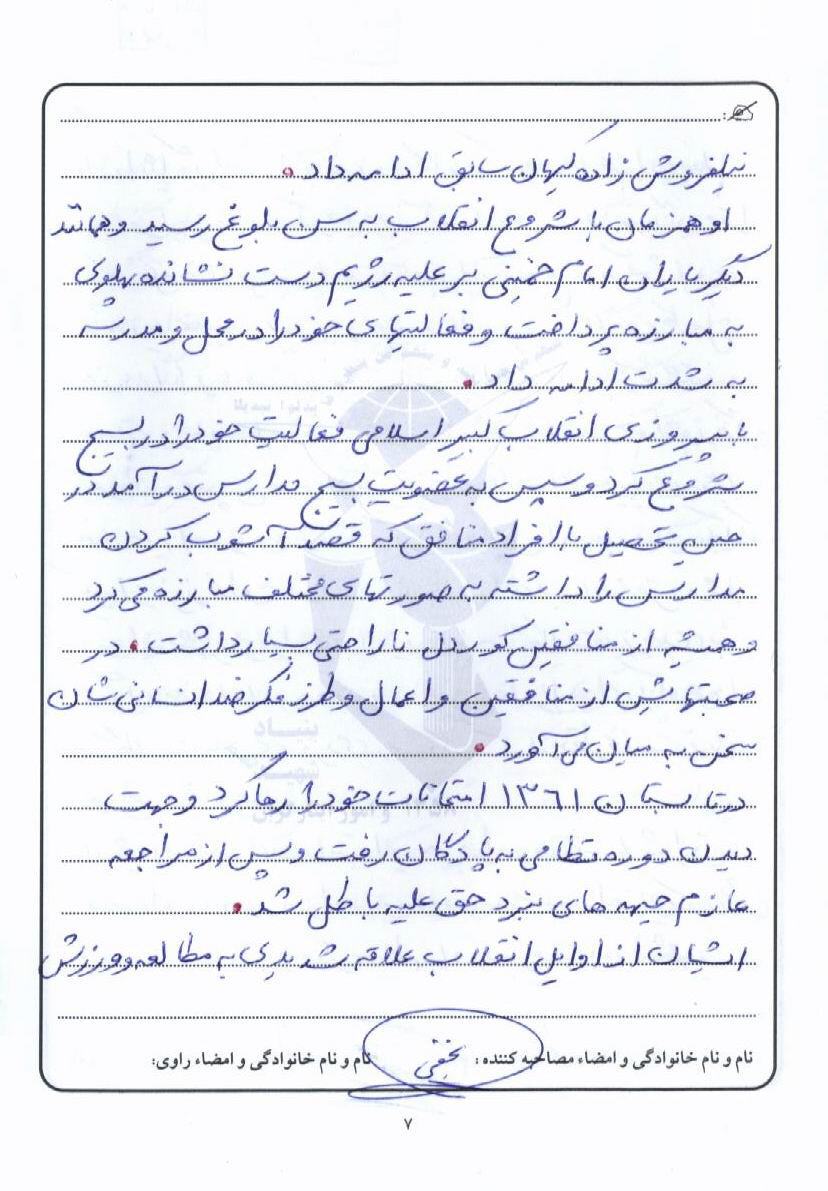 نیلفروش زاده کیهان سابق ادامه داد.
او همزمان با شروع انقلاب به سن بلوغ رسید و همانند
دیگر یاران امام خمینی بر علیه رژیم دست نشانده پهلوی
به مبارزه پرداخت و فعالیتهای خود را در محل و مدرسه
به شدت ادامه داد.
با پیروزی انقلاب کبیر اسلامی فعالیت خود را در بسیج
شروع کرد و سپس به عضویت بسیج مدارس در آمد در
حین تحصیل با افراد منافق که قصد آشوب کردن
مدارس را داشته به صورتهای مختلف مبارزه می کرد
و همیشه از منافقین کوردل ناراحتی بسیار داشت. در
صحبتهایش از منافقین و اعمال و طرز فکر ضد انسانی شان
سخن به میان می آورد.
در تابستان ۱۳۶۱ امتحانات خود را رها کرد و جهت
دیدن دوره نظامی به پادگان رفت و پس از مراجعه
عازم جبهه های نبرد حق علیه باطل شد.
ایشان از اوایل انقلاب علاقه شدیدی به مطالعه و ورزش
نام و نام خانوادگی و امضاء مصاحبه کننده : نجفی نام و نام خانوادگی و امضاء راوی:
۷